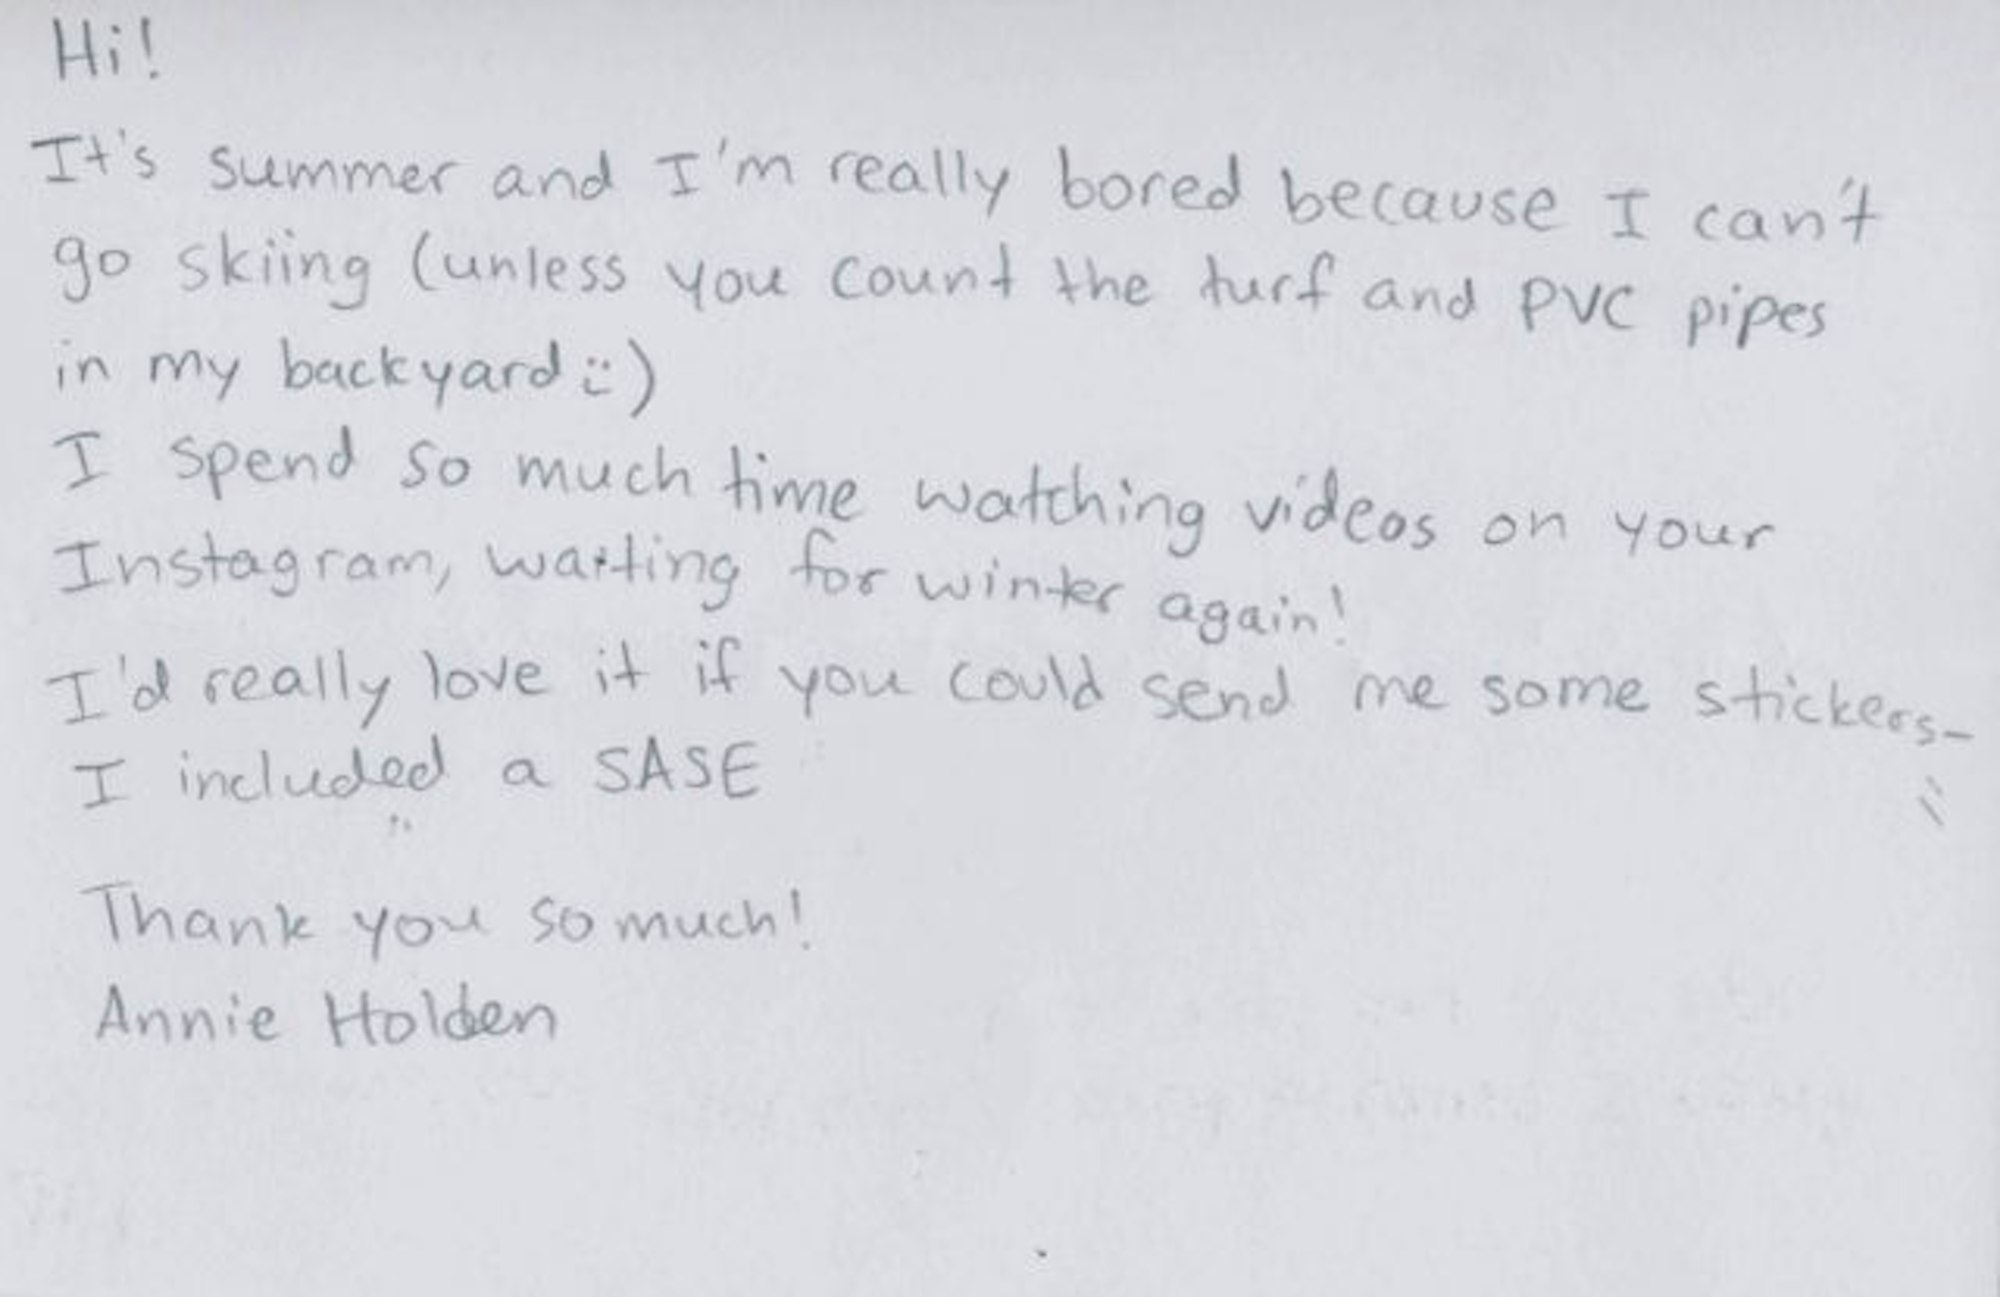 Hi!
It's summer and I'm really bored because I can't
go skiing (unless you count the turf and PVC pipes
in my backyard :))
I spend so much time watching videos on your
Instagram, waiting for winter again!
I'd really love it if you could send me some stickers-
I included a SASE
Thank you so much!
Annie Holden